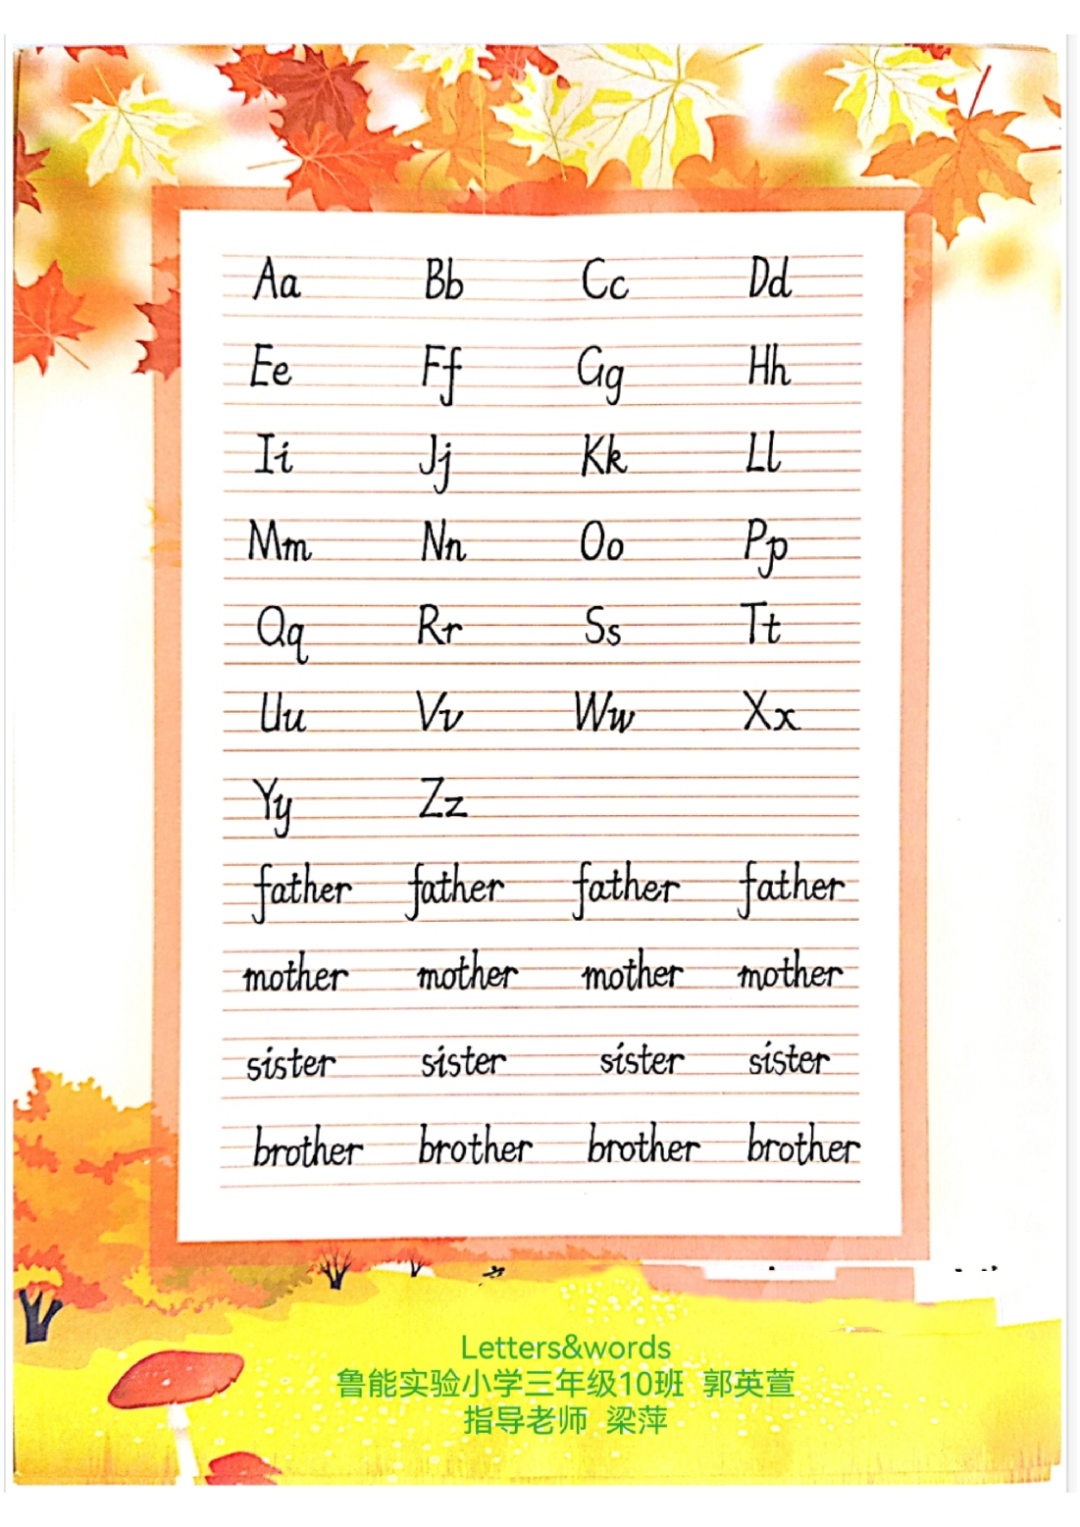 Aa Bb Cc Dd
Ee Ff Gg Hh
Ii Jj Kk Ll
Mm Nn Oo Pp
Qq Rr Ss Tt
Uu Vv Ww Xx
Yy Zz
father father father father
mother mother mother mother
sister sister sister sister
brother brother brother brother
Letters&words
鲁能实验小学三年级10班 郭英萱
指导老师 梁萍